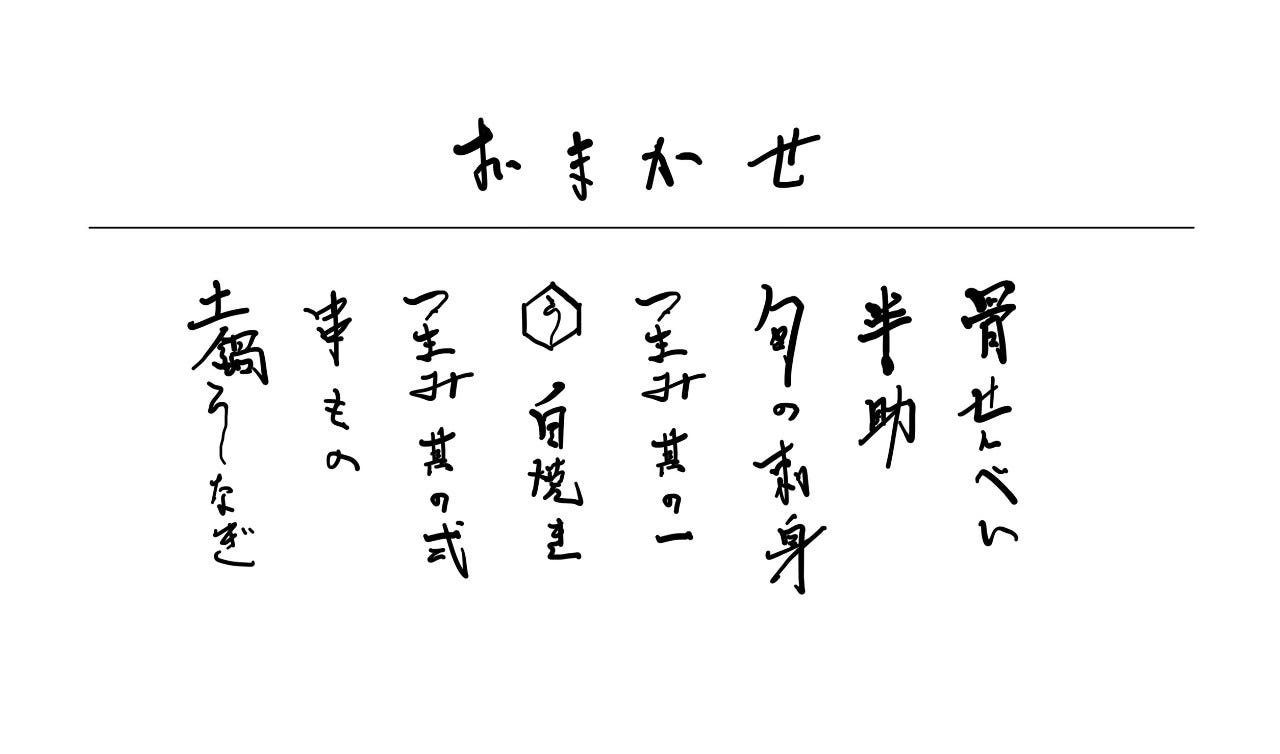 おまかせ
骨せんべい
半助
旬の刺身
つまみ 其の一
う 白焼き
つまみ 其の弐
串もの
土鍋うなぎ